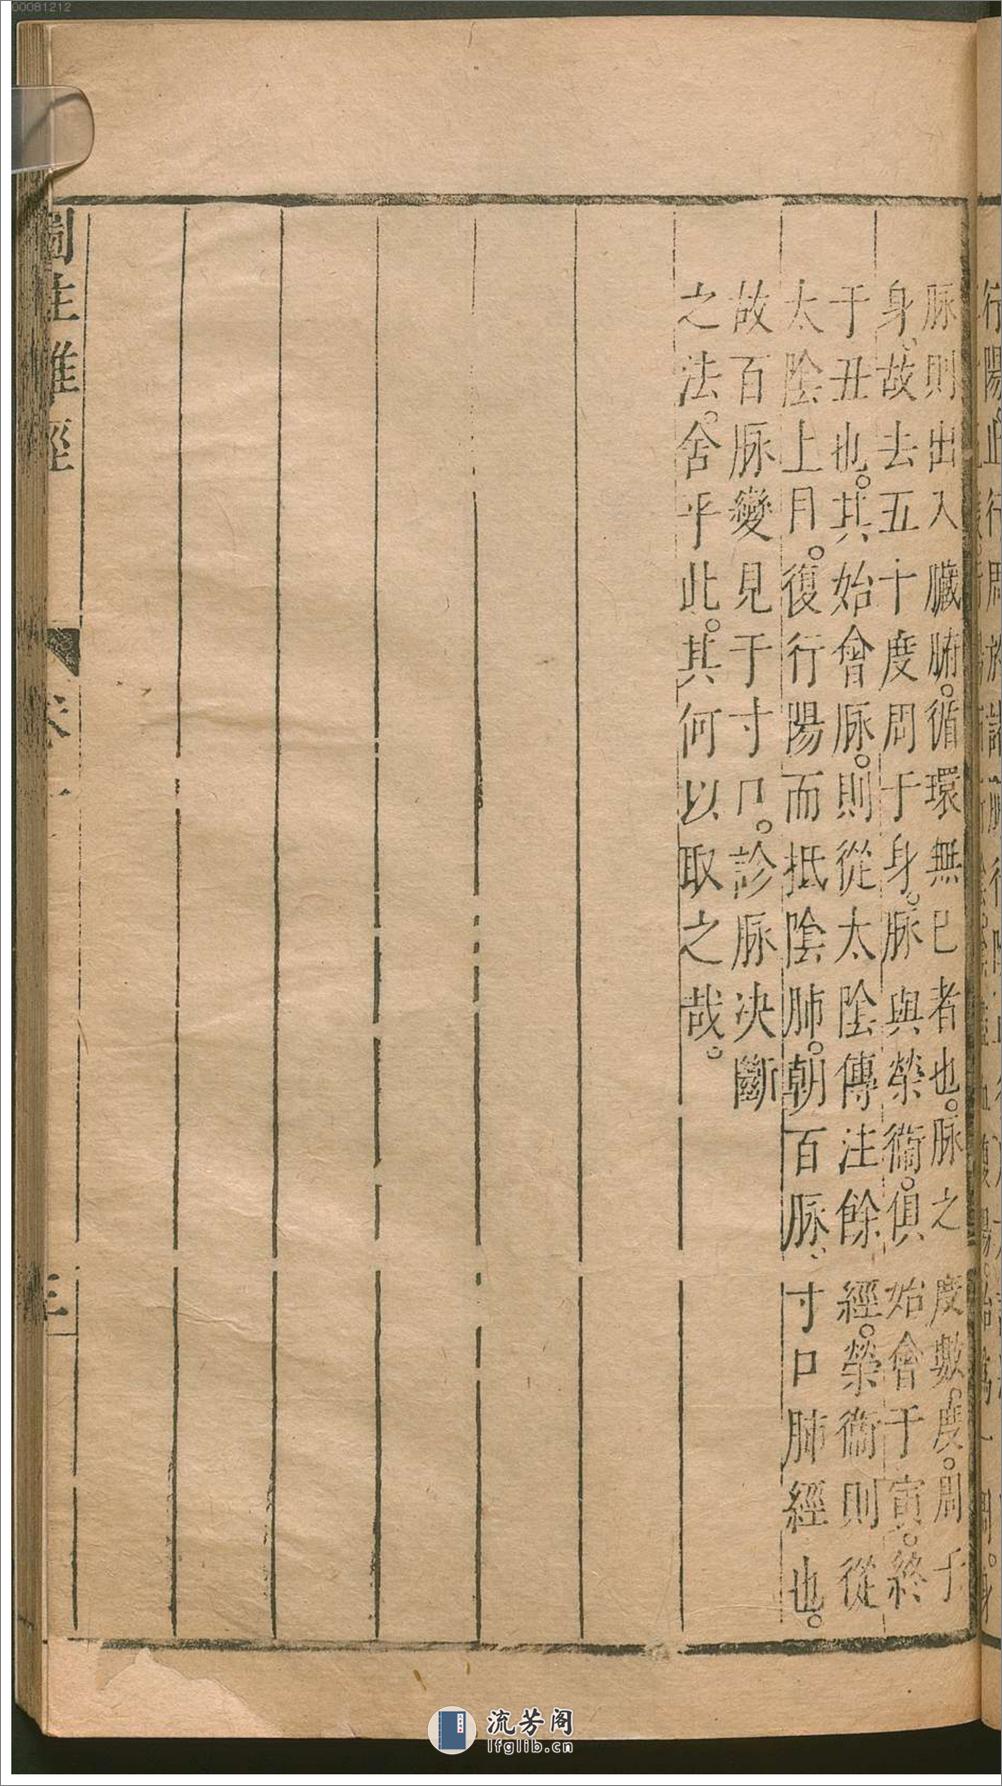 00081212
脉則出入臟腑。循環無已者也。脉之度數。度。周于
身、故去五十度周于身。脉與榮衞。俱始會于寅。終
于丑也。其始會脉。則從太陰傳注餘經。榮衞則從
太陰上月。復行陽而抵陰肺。朝百脉、寸口肺經也。
故百脉變見于寸口。診脉决斷
之法。舍乎此。其何以取之哉。
圖注難經
卷一
三
流芳阁
lfglib.cn